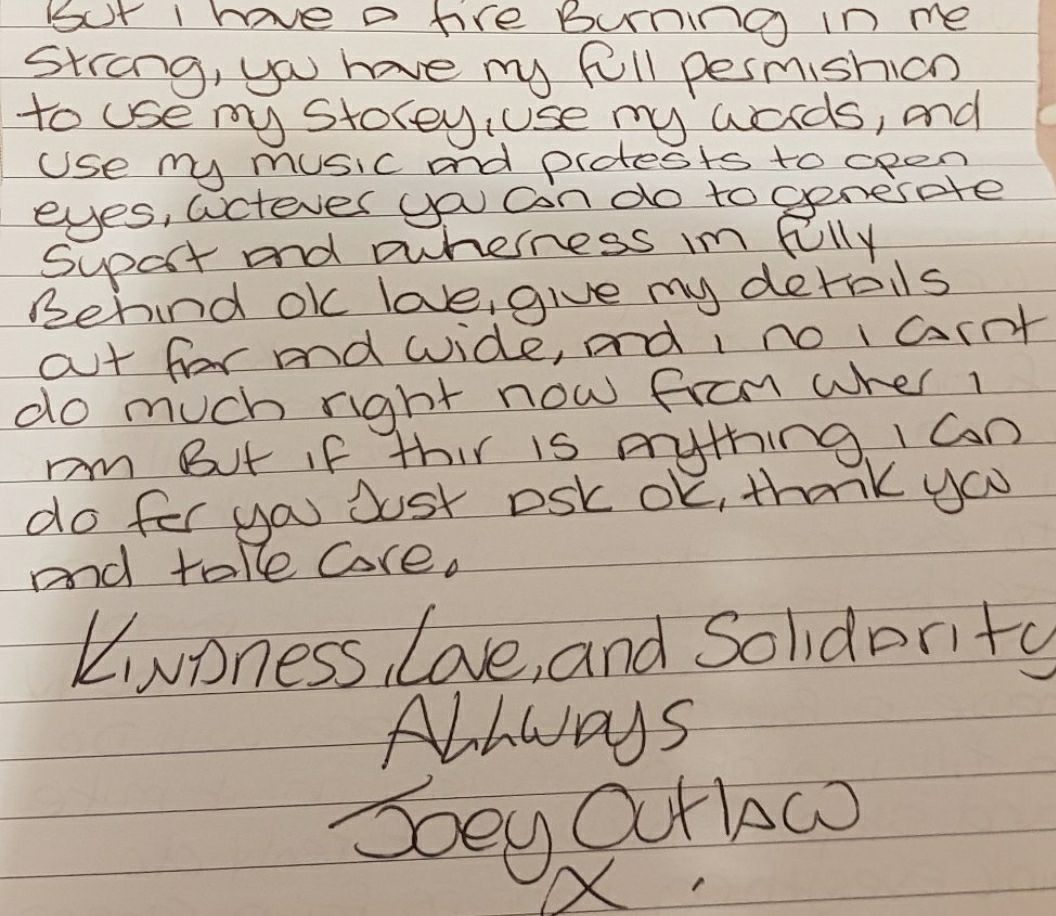 But i have a fire Burning in me
Strong, you have my full permishion
to use my Storey, use my words, and
use my music and protests to open
eyes, wotever you can do to generate
Suport and awherness im fully
Behind ok love, give my details
out far and wide, and i no i carnt
do much right now from wher i
am But if thir is anything i can
do for you Just ask ok, thank you
and take care.
Kindness, Love, and Solidarity
Allways
Joey Outlaw
X